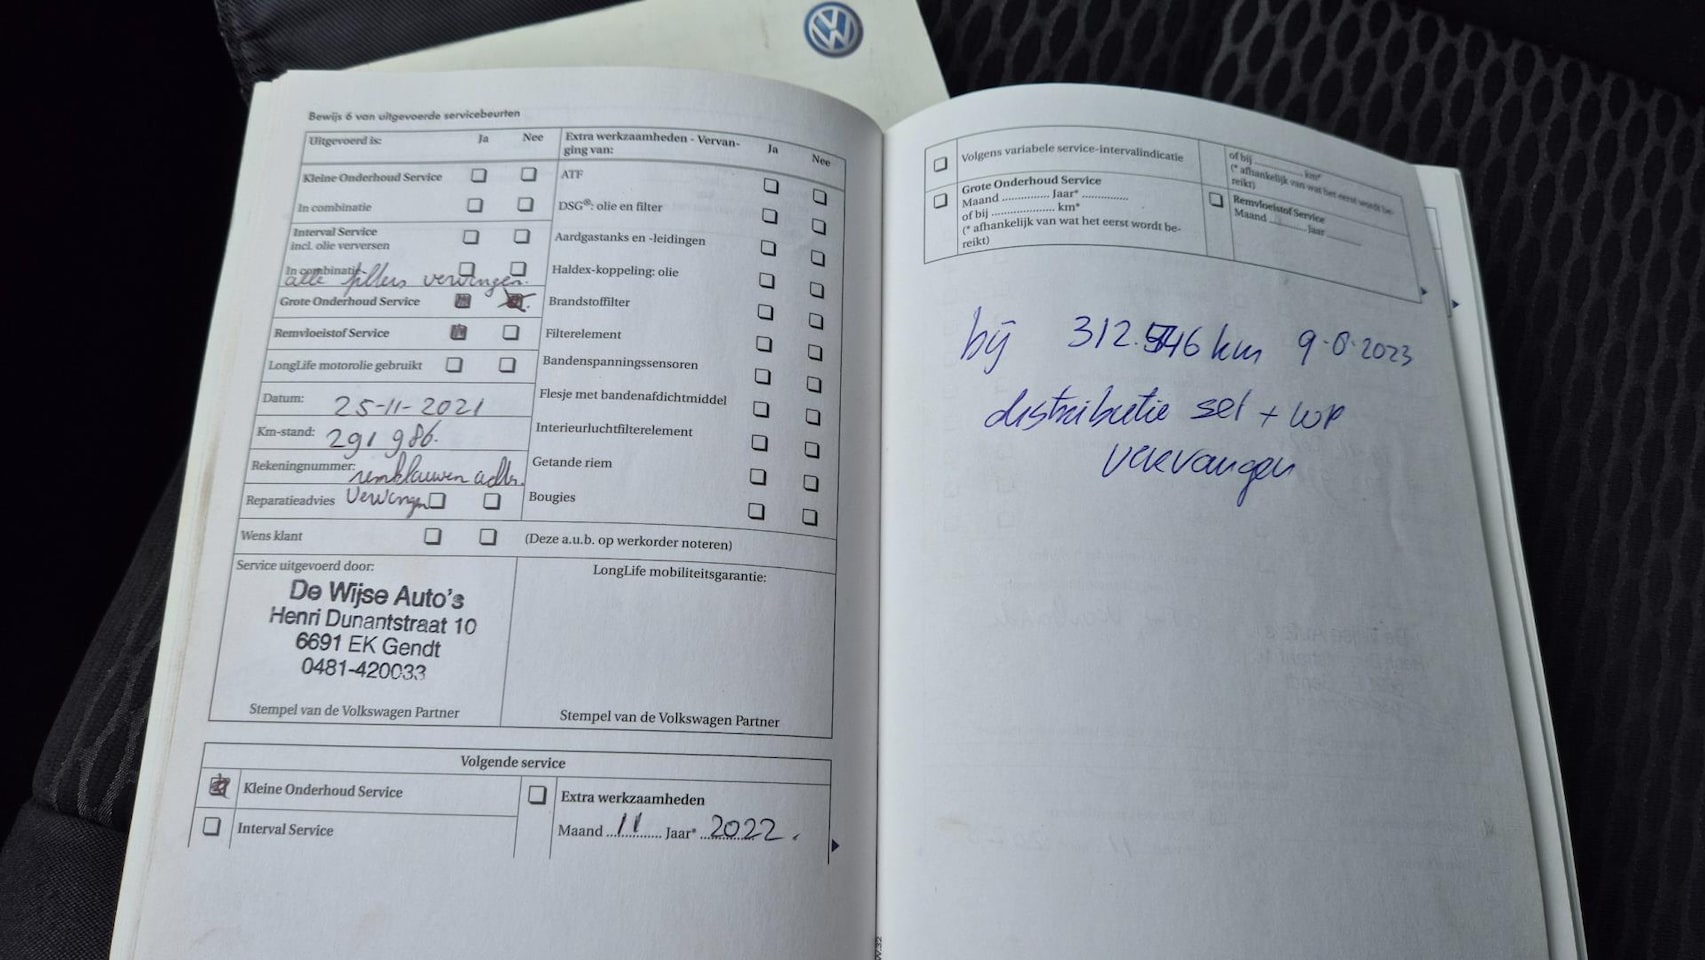 Bewijs 6 van uitgevoerde servicebeurten
Uitgevoerd is: Ja Nee
Kleine Onderhoud Service
In combinatie
Interval Service
incl. olie verversen
In combinatie
alle filters vervangen.
Grote Onderhoud Service
Remvloeistof Service
LongLife motorolie gebruikt
Datum: 25-11-2021
Km-stand: 291 986.
Rekeningnummer: remklauwen achter.
Reparatieadvies vervangen
Wens klant
Extra werkzaamheden - Vervan-
ging van: Ja Nee
ATF
DSG®: olie en filter
Aardgastanks en -leidingen
Haldex-koppeling: olie
Brandstoffilter
Filterelement
Bandenspanningssensoren
Flesje met bandenafdichtmiddel
Interieurluchtfilterelement
Getande riem
Bougies
(Deze a.u.b. op werkorder noteren)
Service uitgevoerd door:
De Wijse Auto's
Henri Dunantstraat 10
6691 EK Gendt
0481-420033
Stempel van de Volkswagen Partner
LongLife mobiliteitsgarantie:
Stempel van de Volkswagen Partner
Volgende service
Kleine Onderhoud Service
Interval Service
Extra werkzaamheden
Maand 11 Jaar* 2022.
Volgens variabele service-intervalindicatie
Grote Onderhoud Service
Maand .............. Jaar* ..............
of bij ................... km*
(* afhankelijk van wat het eerst wordt be-
reikt)
of bij .............. km*
(* afhankelijk van wat het eerst wordt be-
reikt)
Remvloeistof Service
Maand ........... Jaar ...........
bij 312.546 km 9-8-2023
distributie set + WP
vervangen